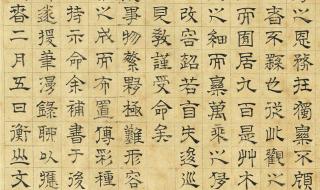 之恩務在獨樂不顧
者不繇也從此觀之
而囿居九百是艸木
之細而樂萬乘之侈
改容超若自失逡巡
見敎謹受命矣
事物繁夥極難形容
之成而布置傅彩種
持示命余補書于後
遂援筆漫錄聊以應
春二月五日衡山文